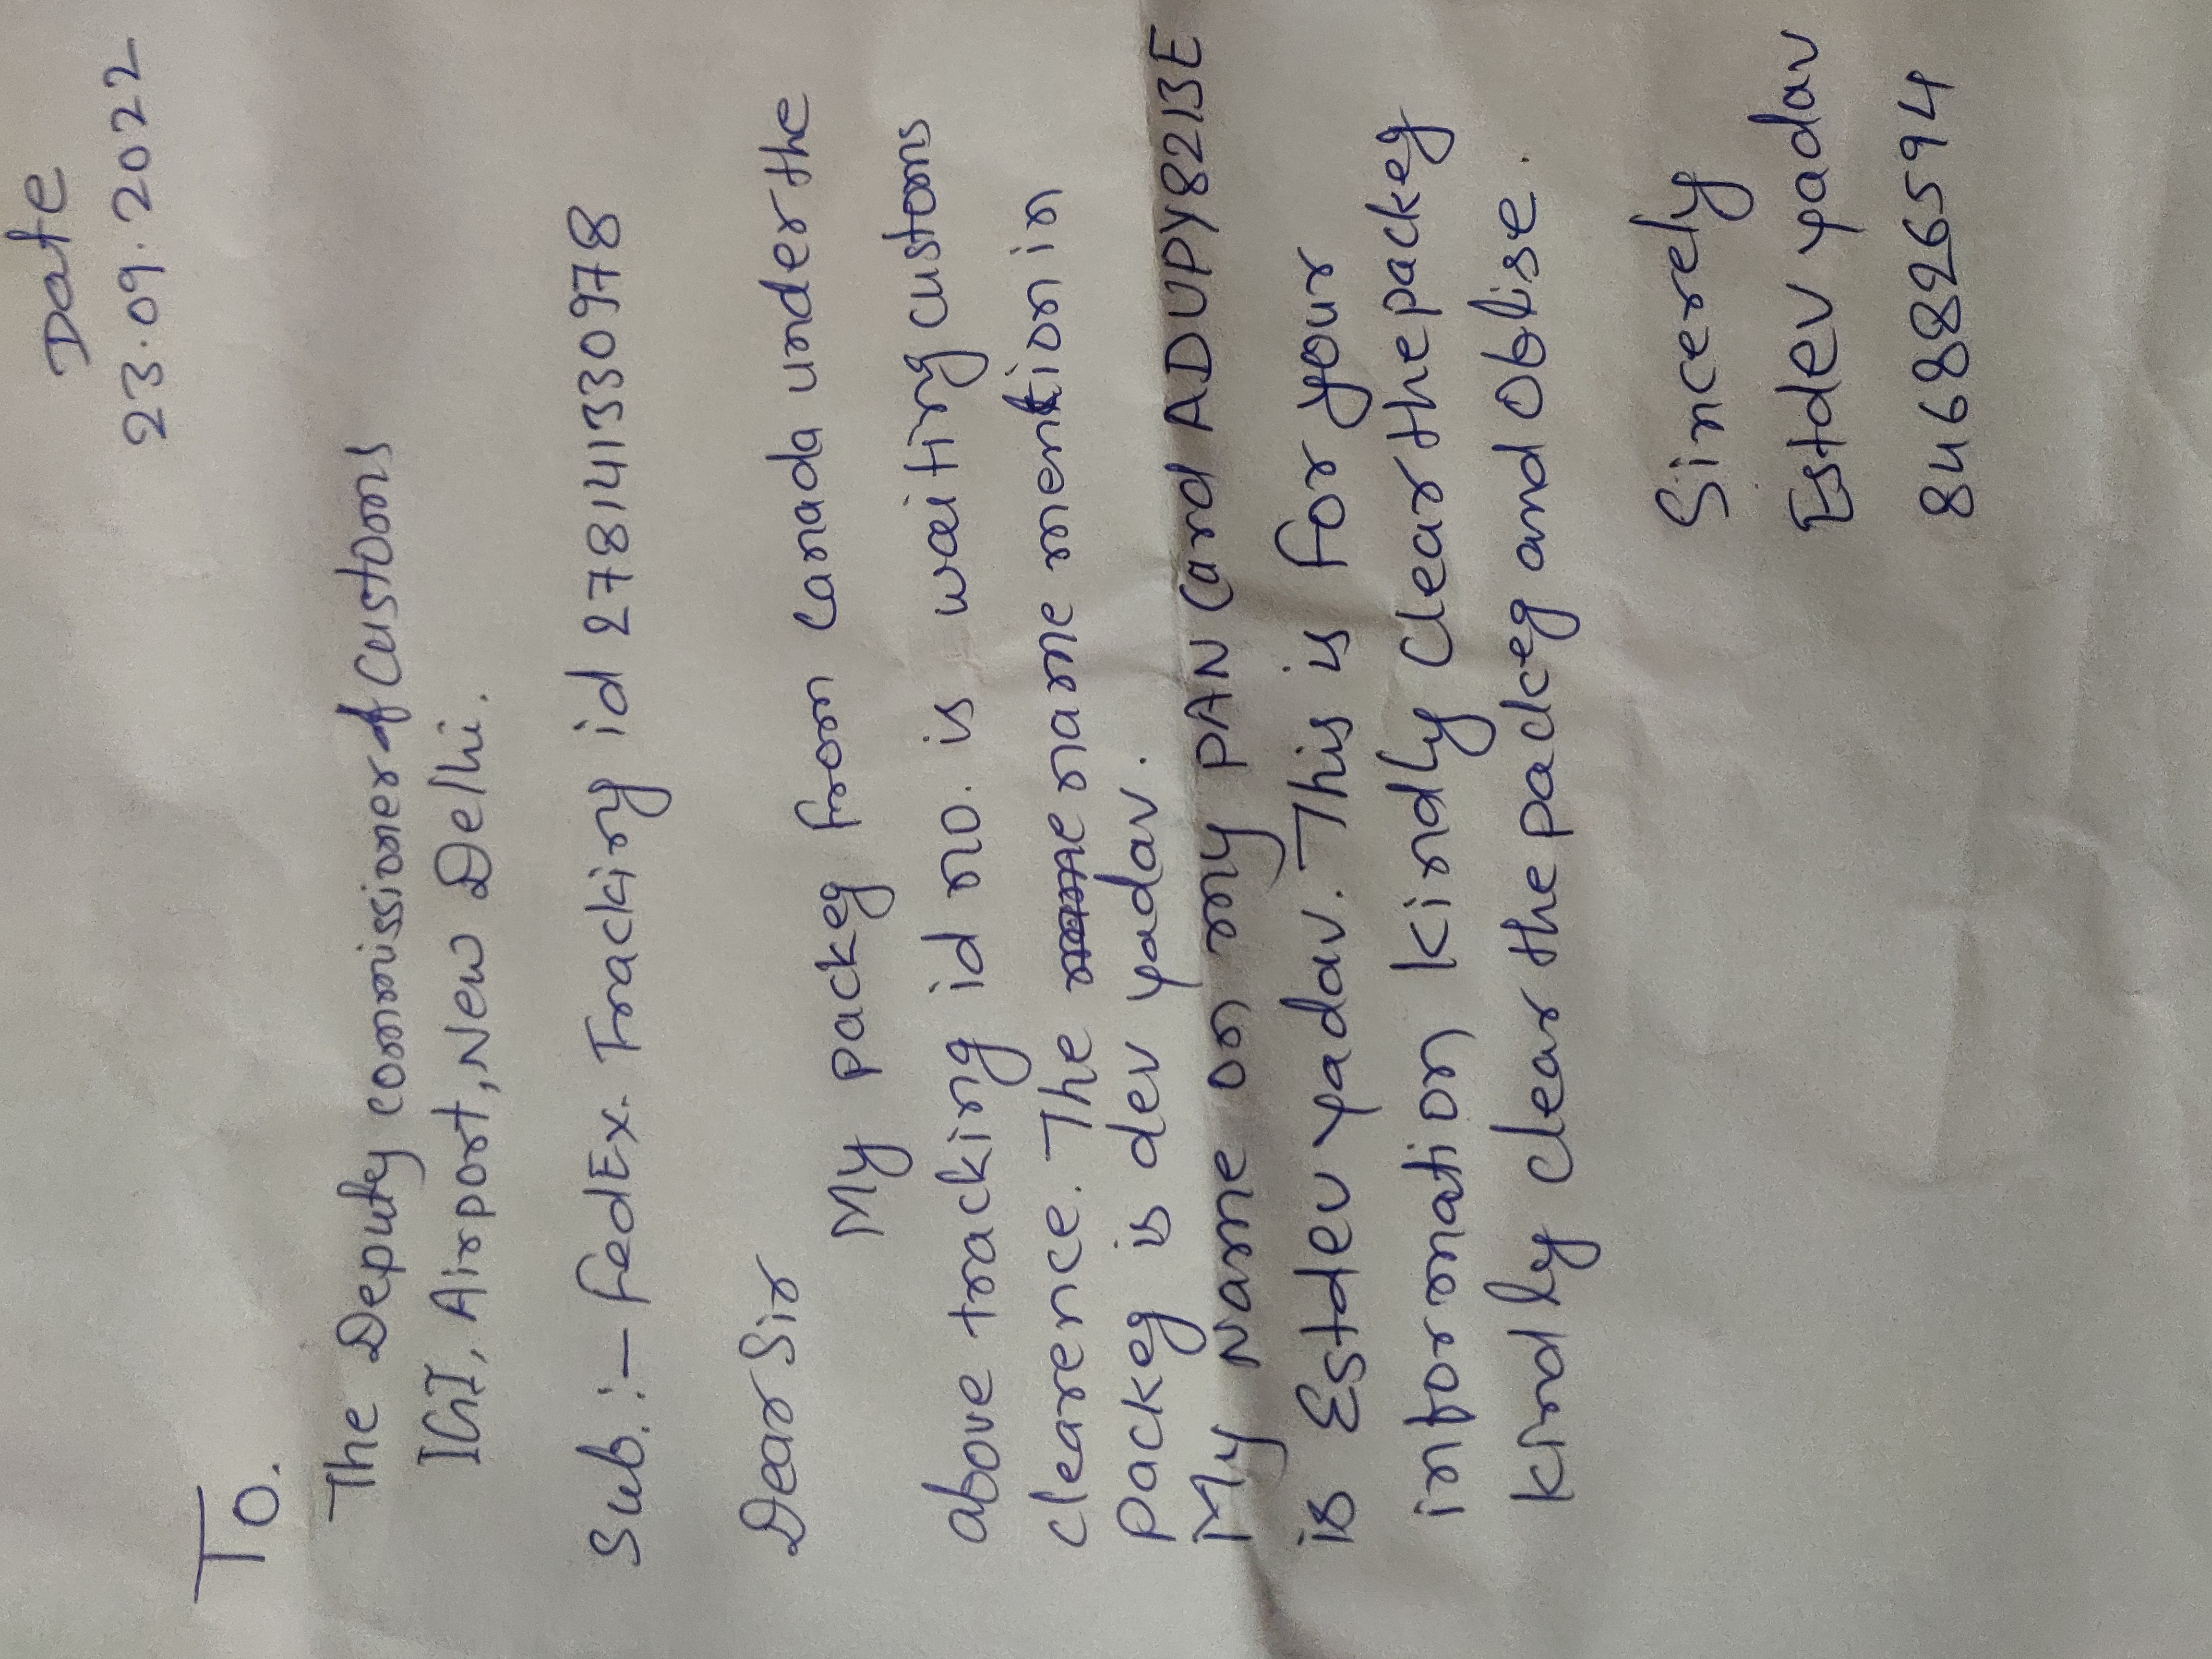 Date
23.09.2022
To.
The Deputy commissioner of Customs
IGI, Airport, New Delhi.
Sub.:- FedEx. Tracking id 278141330978
Dear Sir
My packeg from Canada under the
above tracking id no. is waiting customs
clearence. The name mention in
packeg is dev yadav.
My Name on my PAN Card ADUPY8213E
is Estdev yadav. This is for your
information kindly clear the packeg
kindly clear the packeg and oblise.
Sincerely
Estdev yadav
8468826594